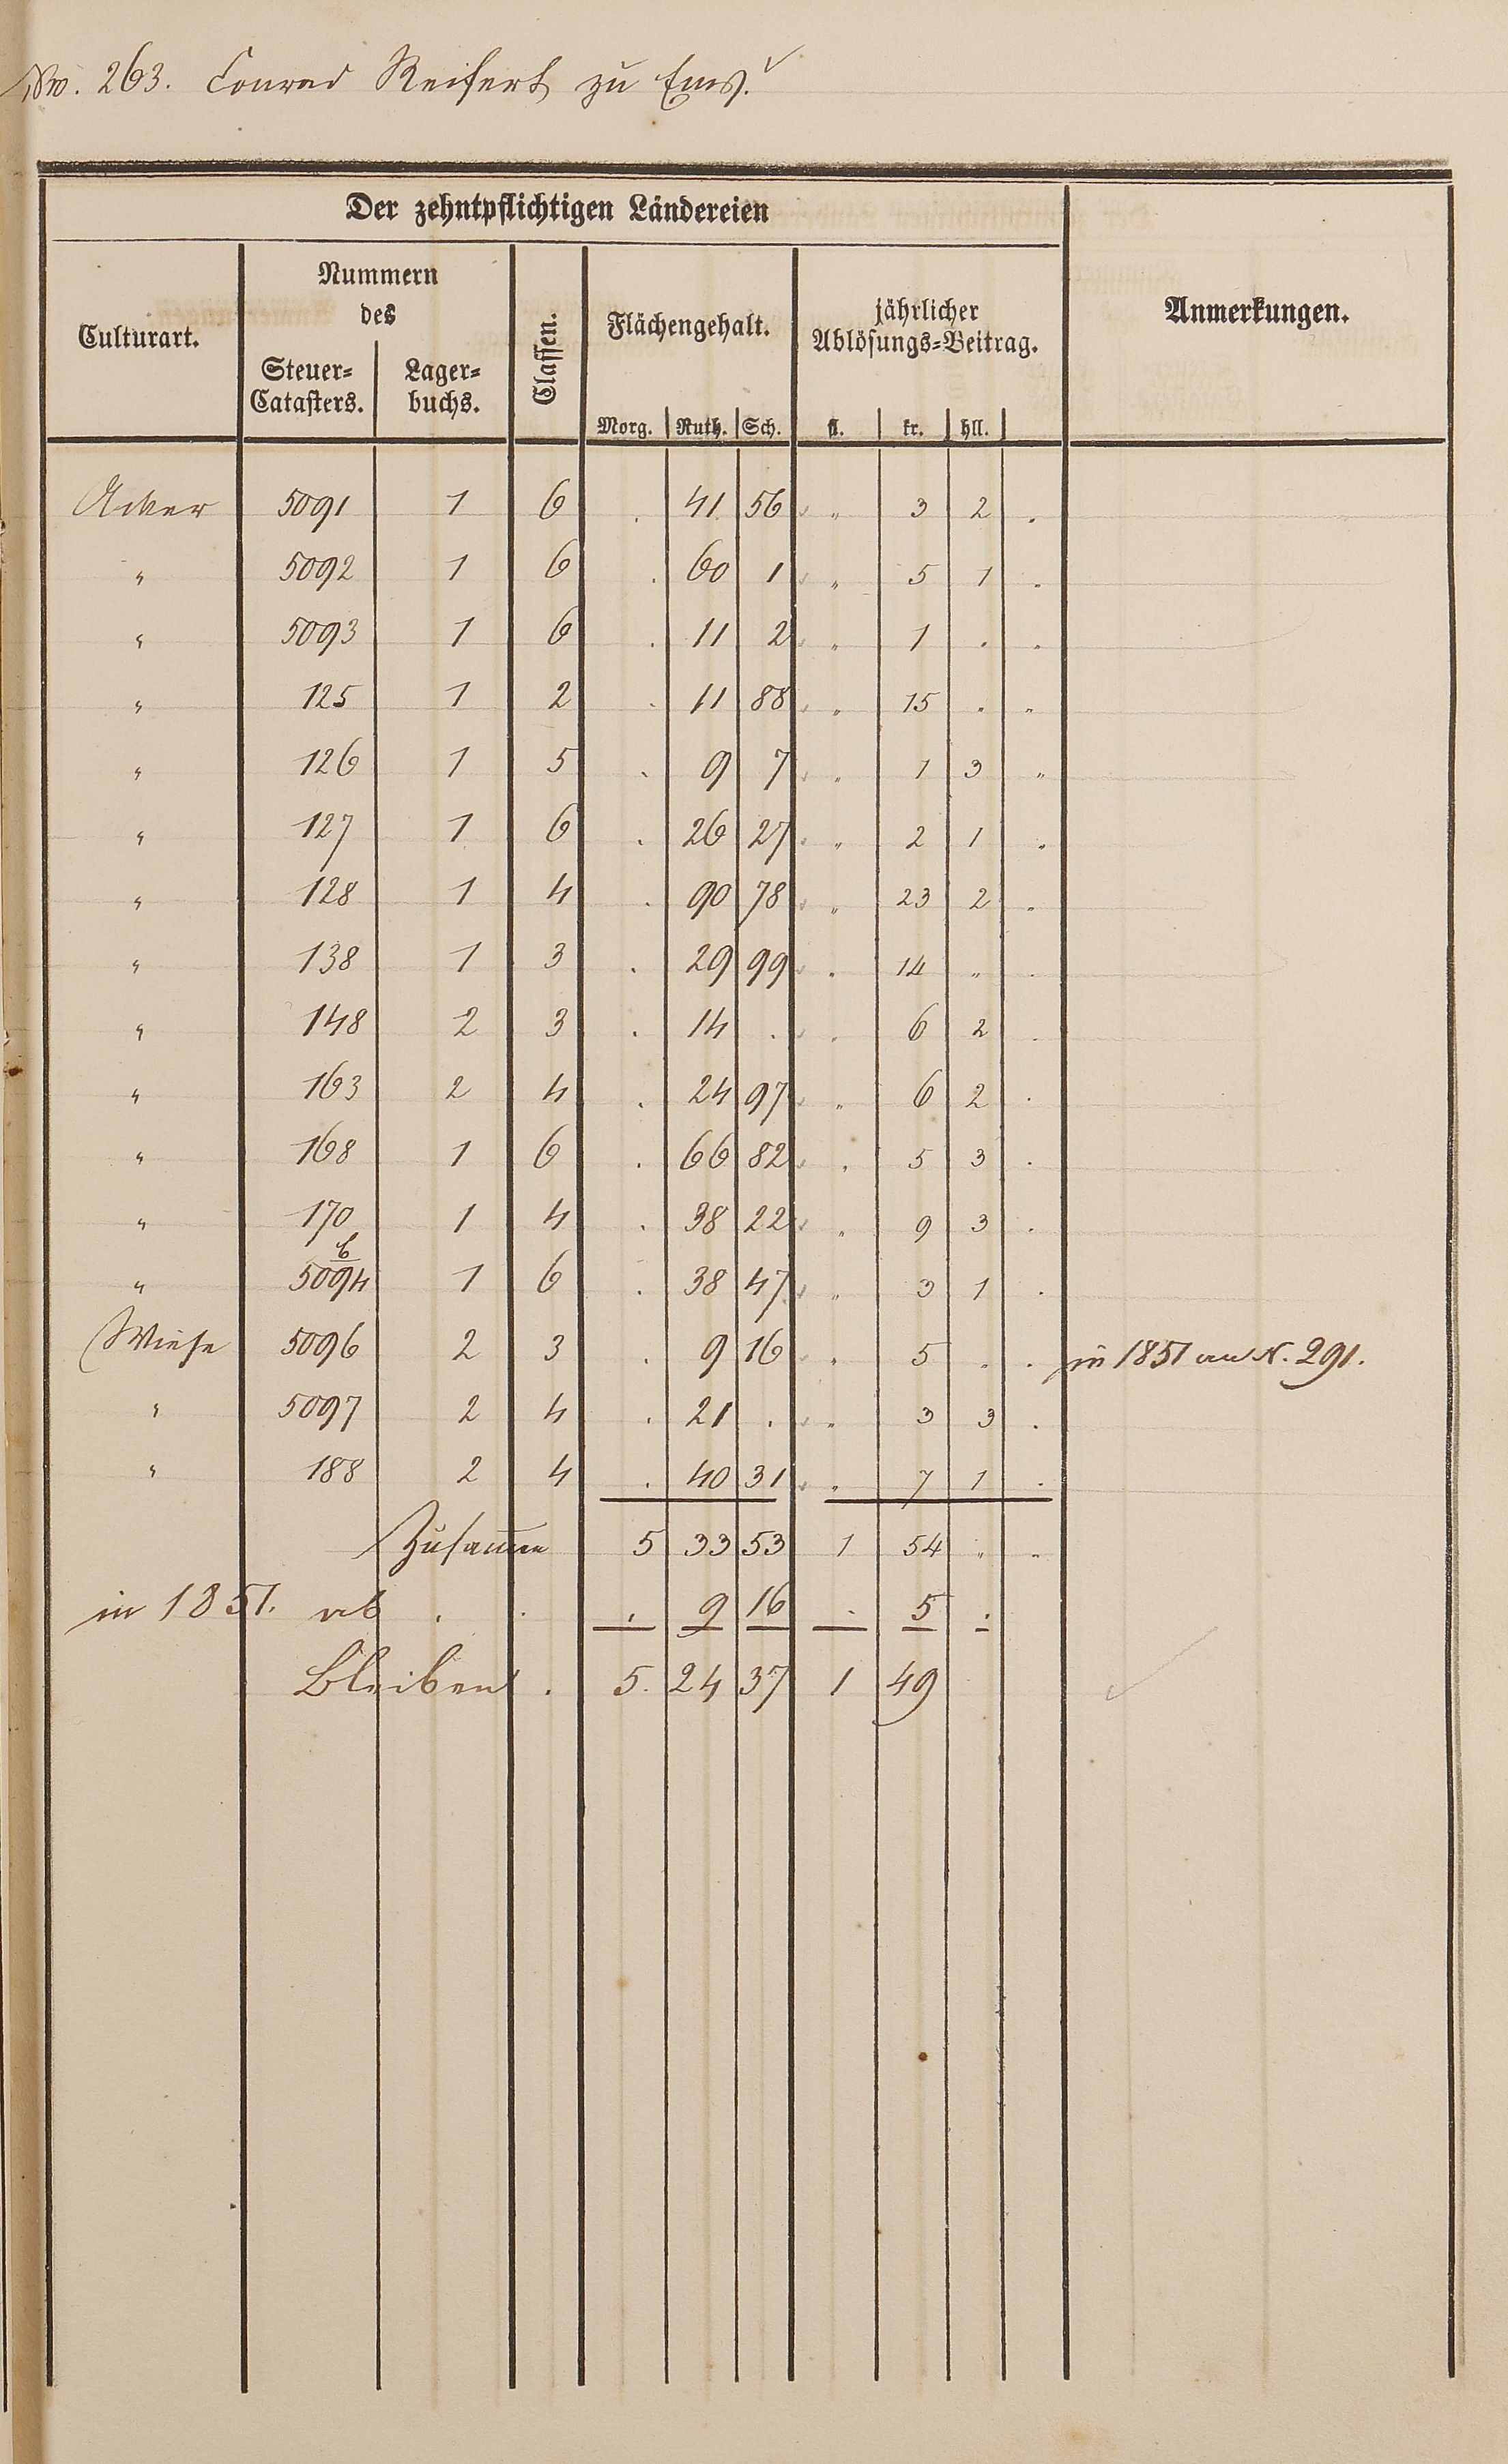 No. 263. Conrad Reifert zu Ems.
Der zehntpflichtigen Ländereien
Culturart.
Nummern
des
Steuer=
Catasters.
Lager=
buchs.
Classen.
Flächengehalt.
Morg. Ruth. Sch.
jährlicher
Ablösungs=Beitrag.
fl. kr. hll.
Anmerkungen.
Acker 5091 1 6 . 41 56 „ 3 2 .
„ 5092 1 6 . 60 1 „ 5 1 .
„ 5093 1 6 . 11 2 „ 1 . .
„ 125 1 2 . 11 88 „ 15 . „
„ 126 1 5 . 9 7 „ 1 3 „
„ 127 1 6 . 26 27 „ 2 1 .
„ 128 1 4 . 90 78 „ 23 2 .
„ 138 1 3 . 29 99 . 14 „ .
„ 148 2 3 . 14 . . 6 2 .
„ 163 2 4 . 24 97 „ 6 2 .
„ 168 1 6 . 66 82 . 5 3 .
„ 170 1 4 . 38 22 „ 9 3 .
„ 5094 b 1 6 . 38 47 „ 3 1 .
Wiese 5096 2 3 . 9 16 . 5 . . in 1851 an N. 291.
„ 5097 2 4 . 21 . „ 3 3 .
„ 188 2 4 . 40 31 . 7 1 .
Zusamen 5 33 53 1 54 „ „
in 1851. ab . . . 9 16 . 5 .
Bleiben . 5. 24 37 1 49